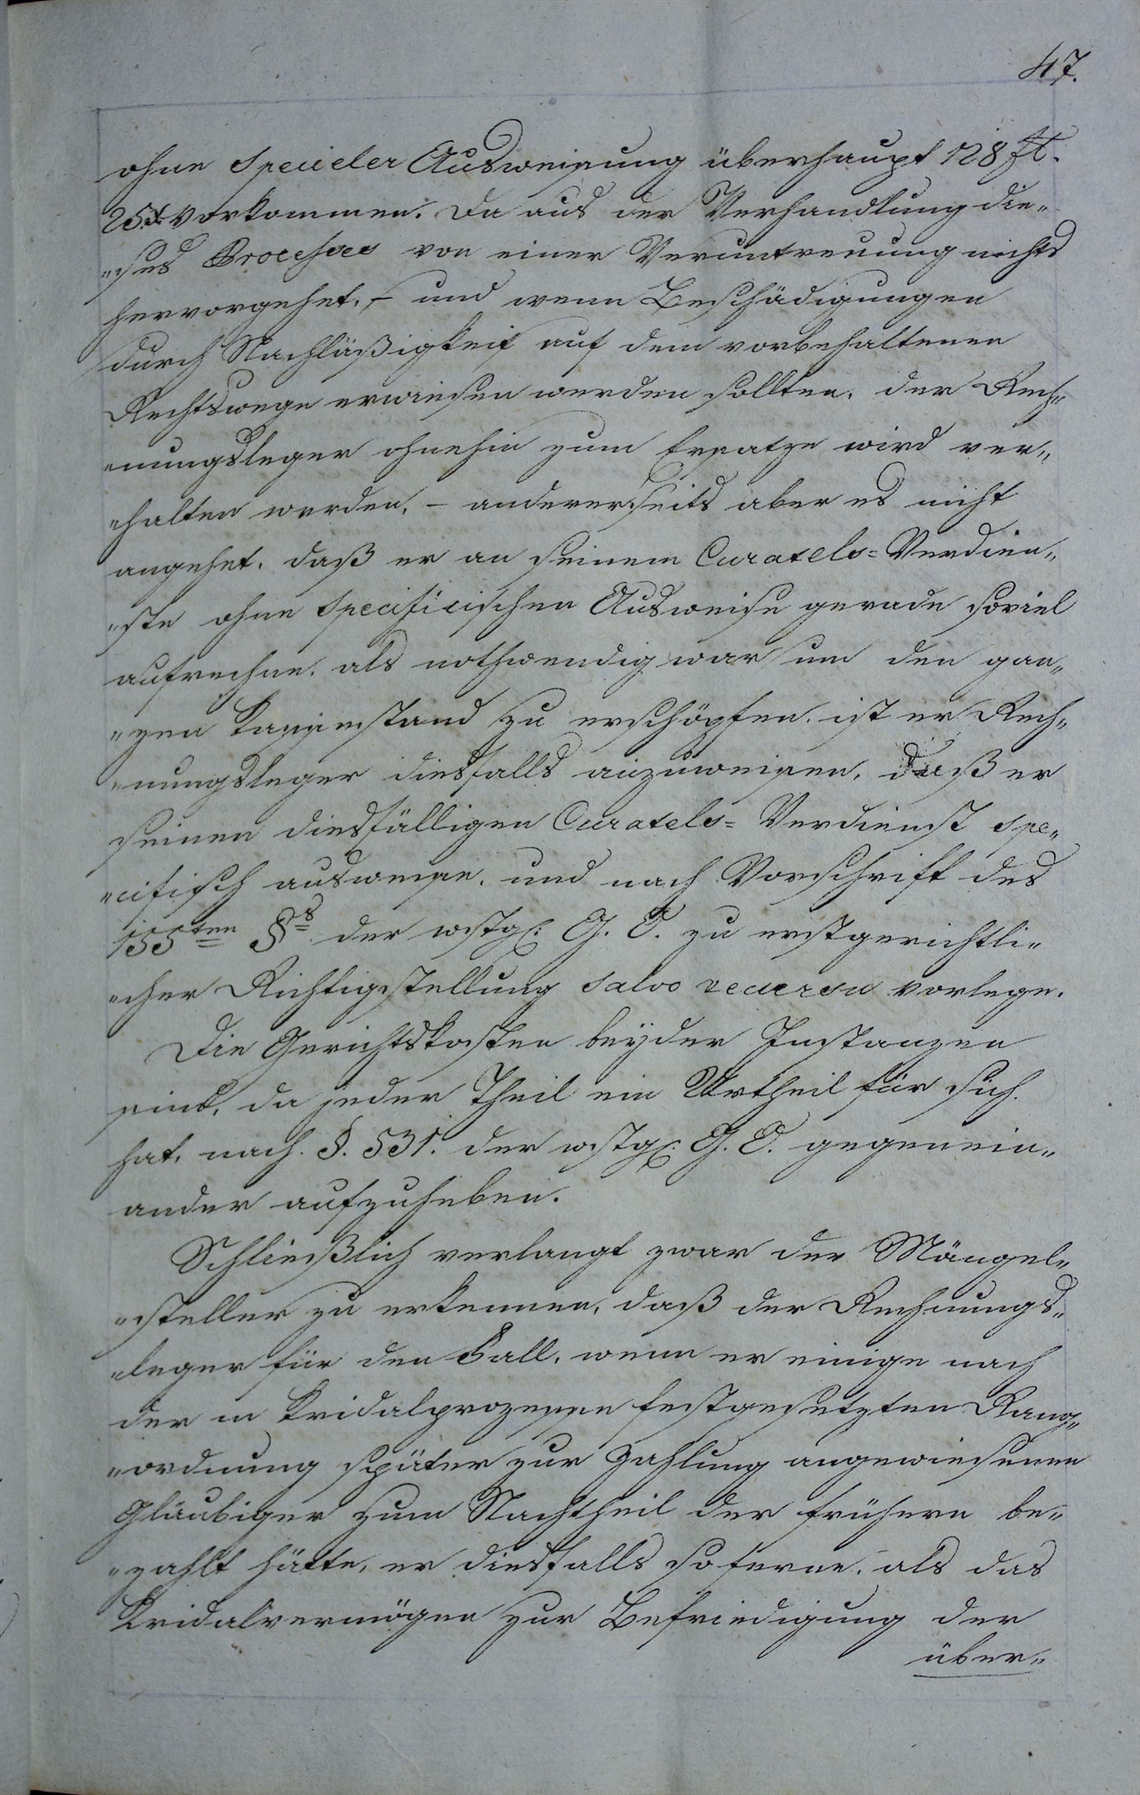 47.
ohne specieler Ausweisung überhaupt 128 ft.
25 x vorkommen. Da aus der Verhandlung die„
„ses Processes von einer Veruntreuung nichts
hervorgehet, – und wenn Beschädigungen
durch Nachläßigkeit auf dem vorbehaltenen
Rechtswege erwiesen werden sollten, der Rech„
„nungsleger ohnehin zum Ersatze wird ver„
„halten werden, – andererseits aber es nicht
angehet, daß er an seinem Curatels= Verdien„
„ste ohne specificischen Ausweise gerade soviel
aufrechne, als nothwendig war um den gan„
„zen Kassastand zu erschöpfen, ist er Rech„
„nungsleger diesfalls anzuweisen, daß er
seinen diesfälligen Curatels= Verdienst spe„
„cifisch ausweise, und nach Vorschrift des
155ten §s der wstg: G. O. zu erstgerichtli„
„cher Richtigstellung salvo recursu vorlege.
Die Gerichtskosten beyder Instanzen
sind, da jeder Theil ein Urtheil für sich
hat, nach §. 531. der wstg: G. O. gegenein„
ander aufzuheben.
Schließlich verlangt zwar der Mängel„
„steller zu erkennen, daß der Rechnungs„
„leger für den Fall, wenn er einige nach
der in Kridalprozesse festgesetzten Rang„
„ordnung später zur Zahlung angewiesenen
Gläubiger zum Nachtheil der frühern be„
„zahlt hätte, er diesfalls soferne, als das
Kridalvermögen zur Befriedigung der
über„